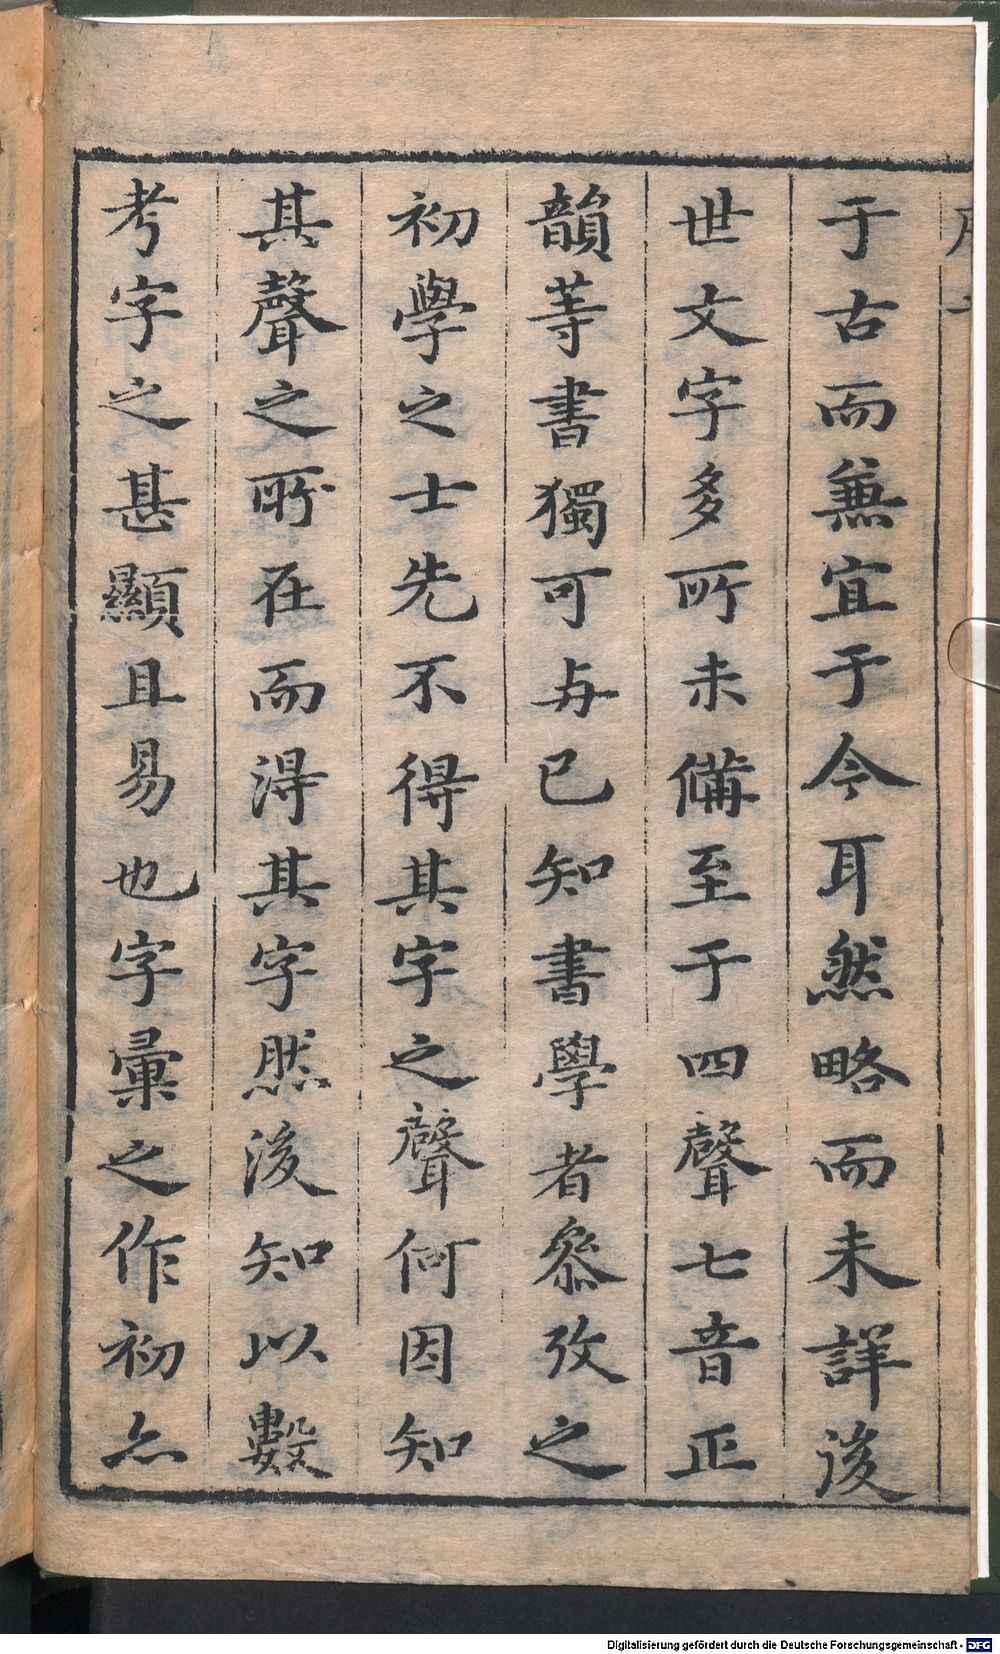 于古而兼宜于今耳然略而未詳後
世文字多所未備至于四聲七音正
韻等書獨可与已知書學者叅攷之
初學之士先不得其字之聲何因知
其聲之所在而淂其字然後知以數
考字之甚顯且易也字彙之作初亦
Digitalisierung gefördert durch die Deutsche Forschungsgemeinschaft - DFG